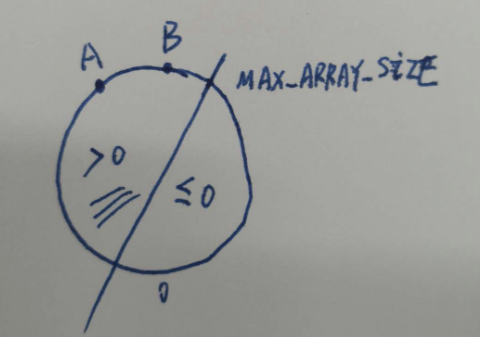 A
B
MAX_ARRAY_SIZE
>0
≤0
0